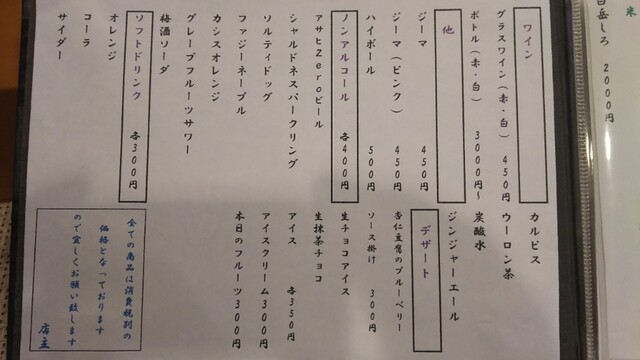 ワイン
グラスワイン(赤・白) 450円
ボトル(赤・白) 3000円〜
他
ジーマ 450円
ジーマ(ピンク) 450円
ハイボール 500円
ノンアルコール 各400円
アサヒZeroビール
シャルドネスパークリング
ソルティドッグ
ファジーネーブル
カシスオレンジ
グレープフルーツサワー
梅酒ソーダ
ソフトドリンク 各300円
オレンジ
コーラ
サイダー
カルピス
ウーロン茶
炭酸水
ジンジャーエール
デザート
杏仁豆腐のブルーベリー
ソース掛け 300円
生チョコアイス
生抹茶チョコ
アイス 各350円
アイスクリーム300円
本日のフルーツ300円
全ての商品は消費税別の
価格となっております
ので宜しくお願い致します
店主
米
白岳しろ 2000円